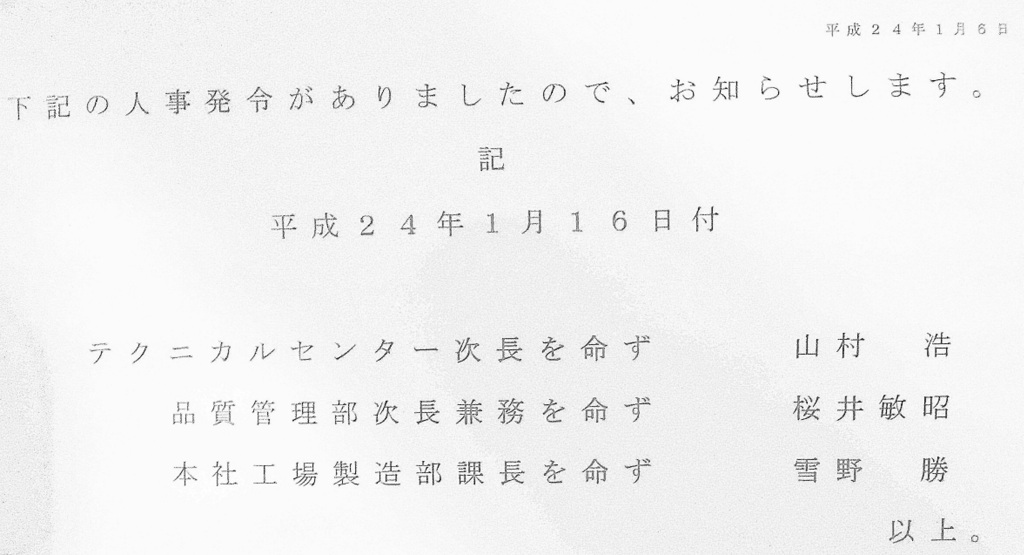 平成24年1月6日
下記の人事発令がありましたので、お知らせします。
記
平成24年1月16日付
テクニカルセンター次長を命ず 山村 浩
品質管理部次長兼務を命ず 桜井敏昭
本社工場製造部課長を命ず 雪野 勝
以上。